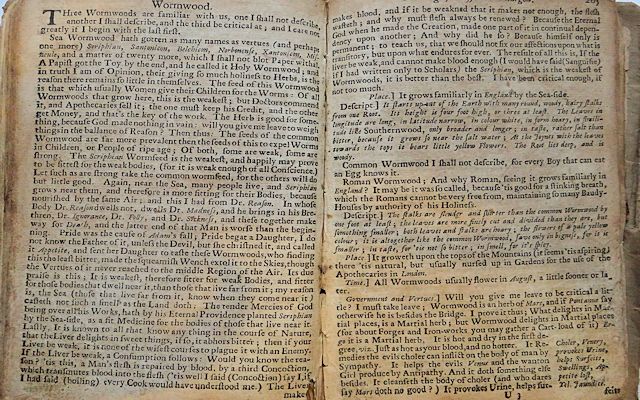 Wormwood.
Three Wormwoods are familiar with us, one I shall not describe,
another I shall describe, and the third be critical at; and I care not
greatly if I begin with the last first.
Sea Wormwood hath gotten as many names as vertues (and perhaps
one more) Seriphian, Santonicon, Belchion, Narbonense, Xantonicon, Mis-
neule, and a matter of twenty more, which I shall not blot Paper withal.
A Papist got the Toy by the end, and he called it Holy Wormwood; and
in truth I am of Opinion, their giving so much holiness to Herbs, is the
reason there remains so little in themselves. The seed of this Wormwood
is that which usually Women give their Children for the Worms. Of all
Wormwoods that grow here, this is the weakest; but Doctors commend
it, and Apothecaries sell it; the one must keep his Credit, and the other
get Money, and that's the key of the work. The Herb is good for some-
thing, because God made nothing in vain: will you give me leave to weigh
things in the ballance of Reason? Then thus: The seeds of the common
Wormwood are far more prevalent then the seeds of this to expel Worms
in Children, or People of ripe age; Of both, some are weak, some are
strong. The Seriphian Wormseed is the weakest, and happily may prove
to be fittest for the weak bodies, (for it is weak enough of all Conscience.)
Let such as are strong take the common wormseed, for the others will do
but little good. Again, near the Sea, many people live, and Seriphian
grows near them, and therefore is more fitting for their Bodies, because
nourished by the same Air; and this I had from Dr. Reason. In whose
Body Dr. Reason dwells not, dwells Dr. Madness, and he brings in his Bre-
thren, Dr. Ignorance, Dr. Folly, and Dr. Sickness, and these together make
way for Death, and the latter end of that Man is worse than the begin-
ning. Pride was the cause of Adam's Fall; Pride begate a Daughter, I do
not know the Father of it, unless the Devil, but she christned it, and called
it Appetite, and sent her Daughter to taste these Wormwoods, who finding
this the least bitter, made the squeamish Wench extol it to the Skies, though
the Vertues of it never reached to the middle Region of the Air. Its due
praise is this; It is weakest, therefore fitter for weak Bodies, and fitter
for those bodies that dwell near it, than those that live far from it; my reason
is, the Sea (those that live far from it, know when they come near it)
casteth not such a smell as the Land doth. The tender Mercies of God
being over all his Works, hath by his Eternal Providence planted Seriphian
by the Sea-side, as a fit Medicine for the bodies of those that live near it.
Lastly, It is known to all that know any thing in the course of Nature
that the Liver delights in sweet things, if so, it abhors bitter; then if your
Liver be weak, it is none of the wisest courses to plague it with an Enemy.
If the Liver be weak, a Consumption follows: Would you know the rea-
son? 'tis this, a Man's flesh is repaired by blood, by a third Concoction,
which transmutes blood into the flesh ('tis well I said (Concoction) say I, if
I had said (boiling) every Cook would have understood me.) The Liver
makes
makes blood, and if it be weakned that it makes not enough, the flesh
wasteth; and why must flesh always be renewed? Because the Eternal
God when he made the Creation, made one part of it in continual depen-
dency upon another: And why did he so? Because himself only is
permanent; to teach us, that we should not fix our affections upon what is
transitory, but upon what endures for ever. The result of all this is, If the
liver be weak, and cannot make blood enough (I would have said (Sanguifie)
if I had written only to Scholars) the Seriphian, which is the weakest of
Wormwoods, it is better than the best. I have been critical enough, if
not too much.
Place.] It grows familiarly in England by the Sea-side.
Descript.] It starts up out of the Earth with many round, woody, hairy stalks
from one Root. Its height is four foot high, or three at least. The Leaves in
longitude are long, in latitude narrow, in colour white, in form hoary, in simili-
tude like Southernwood, only broader and longer; in taste, rather salt than
bitter, because it grows so near the salt water. At the joynts with the leaves
towards the tops it bears little yellow Flowers. The Root lies deep, and is
woody.
Common Wormwood I shall not describe, for every Boy that can eat
an Egg knows it.
Roman Wormwood; And why Roman, seeing it grows familiarly in
England? It may be it was so called, because 'tis good for a stinking breath,
which the Romans cannot be very free from, maintaining so many Baudy-
Houses by authority of his Holiness.
Descript.] The stalks are slender and shorter than the common Wormwood by
one foot at least; the leaves are more finely cut and divided than they are, but
something smaller; both leaves and stalks are hoary; the flowers of a pale yellow
colour; it is altogether like the common Wormwood, save only in bigness, for it is
smaller; in taste, for 'tis not so bitter; in smell, for it's spicy.
Place.] It growth upon the tops of the Mountains (it seems 'tis aspiring)
there 'tis natural, but usually nursed up in Gardens for the use of the
Apothecaries in London.
Time.] All Wormwoods usually flower in August, a little sooner or la-
ter.
Government and Vertues.] Will you give me leave to be critical a lit-
tle? I must take leave: Wormwood is an herb of Mars, and if Pontanus say
otherwise he is besides the Bridge. I prove it thus; What delights in Mar-
tial places, is a Martial herb; but Wormwood delights in Martial places
(for about Forges and Iron-works you may gather a Cart-load of it) Er-
go it is a Martial herb. It is hot and dry in the first de-
gree, viz. Just as hot as your blood, and no hotter. It Re-
medies the evils choler can inflict on the body of man by
Sympathy. It helps the evils Venus and the wanton
Girl produce by Antipathy. And it doth something else
besides. It cleanseth the body of choler (and who dares
say Mars doth no good?) It provokes Urine, helps fur-
Choler, Venery,
provokes Urine,
helps Surfeits,
Swellings, Ap-
petite lost,
Yel. Jaundice.
U 3
feits